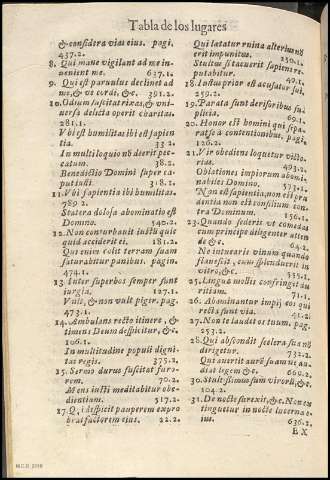 Tabla de los lugares
& considera vias eius. pagi.
437.2.
8. Qui mane vigilant ad me in-
uenient me. 637.1.
9. Qui est paruulus declinet ad
me, & ve cordi, &c. 391.2.
10. Odium suscitat rixas, & vni-
uersa delecta operit charitas.
281.1.
Vbi est humilitas ibi est sapien
tia. 33.2.
In multiloquio nõ deerit pec-
catum. 38.2.
Benedictio Domini super ca-
put iusti. 318.2.
11. Vbi sapientia ibi humilitas.
789.2.
Statera dolosa abominatio est
Domino.
12. Non conturbauit iustũ quic
quid acciderit ei. 181.2.
Qui enim colit terram suam
saturabitur panibus. pagin.
474.1.
13. Inter superbos semper sunt
iurgia. 127.1.
Vult, & non vult piger. pag.
473.1.
14. Ambulans recto itinere, &
timens Deum despicitur, &c.
106.1.
In multitudine populi digni-
tas regis. 375.2.
15. Sermo durus suscitat furo-
rem. 70.2.
Mens iusti meditabitur obe-
dientiam. 517.2.
17. Qui despicit pauperem expro
brat factorem eius. 22.2.
Qui lætatur ruina alterius nõ
erit impunitus. 250.1.
Stultus si tacuerit sapiens re-
putabitur. 49.1.
18. Iustus prior est accusator sui.
259.2.
19. Parata sunt derisoribus sup
plicia. 69.1.
20. Honor est homini qui sepa-
rat se à contentionibus. pag.
126.2.
21. Vir obediens loquetur victo.
493.1.
Oblationes impiorum abomi-
nabiles Domino. 573.1.
Nõ est sapientia, non est pru
dentia non est consilium con
tra Dominum. 156.1.
23. Quando sederis vt comedas
cum principe diligenter atten
de &c. 64.2.
Ne intuearis vinum quando
flauescit, cum splenduerit in
vitro, &c. 555.1.
25. Lingua mollis confringet du
ritiam. 71.1.
26. Abominantur impij eos qui
recta sunt via. 41.2.
27. Non te laudet os tuum. pag.
257.2.
28. Qui abscondit scelera sua nõ
dirigetur. 732.2.
Qui auertit aurẽ suam ne au-
diat legem 660.2.
30. Stultissimus sum virorũ, &c.
104.2.
31. De nocte surrexit, &c. Non ex
tinguetur in nocte lucerna e-
ius. 636.2.
EX